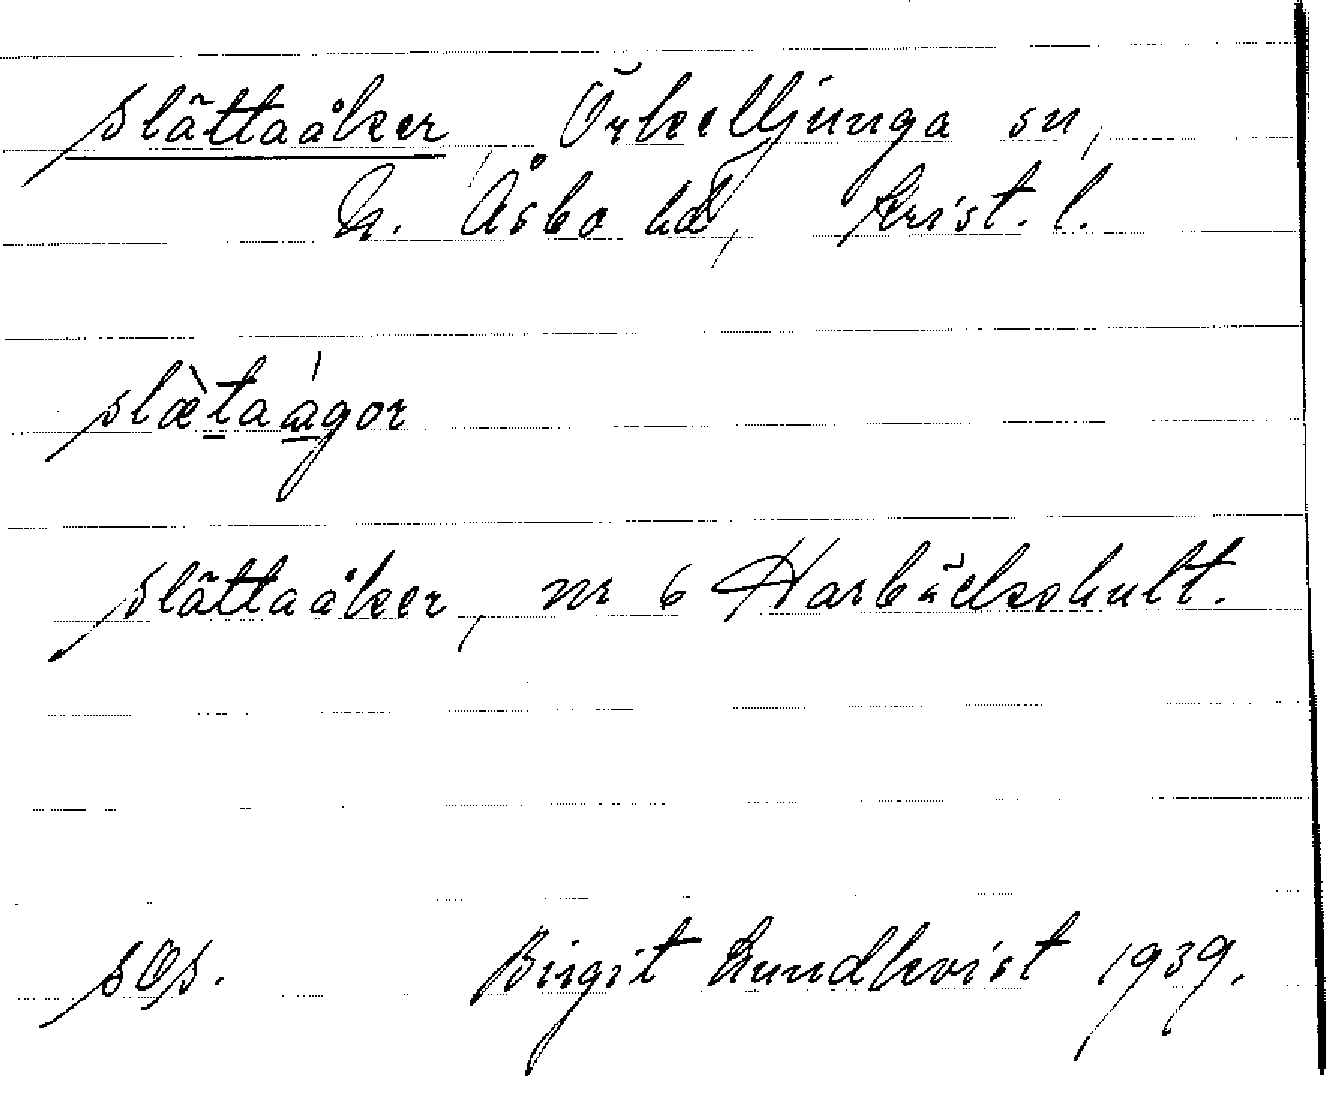 Slättaåker, Örkelljunga sn,
N. Åsbo hd, Krist. l.
slæ̀taágor
Slättaåker, nr 6 Harbäckshult.
Birgit Lundkvist 1939.